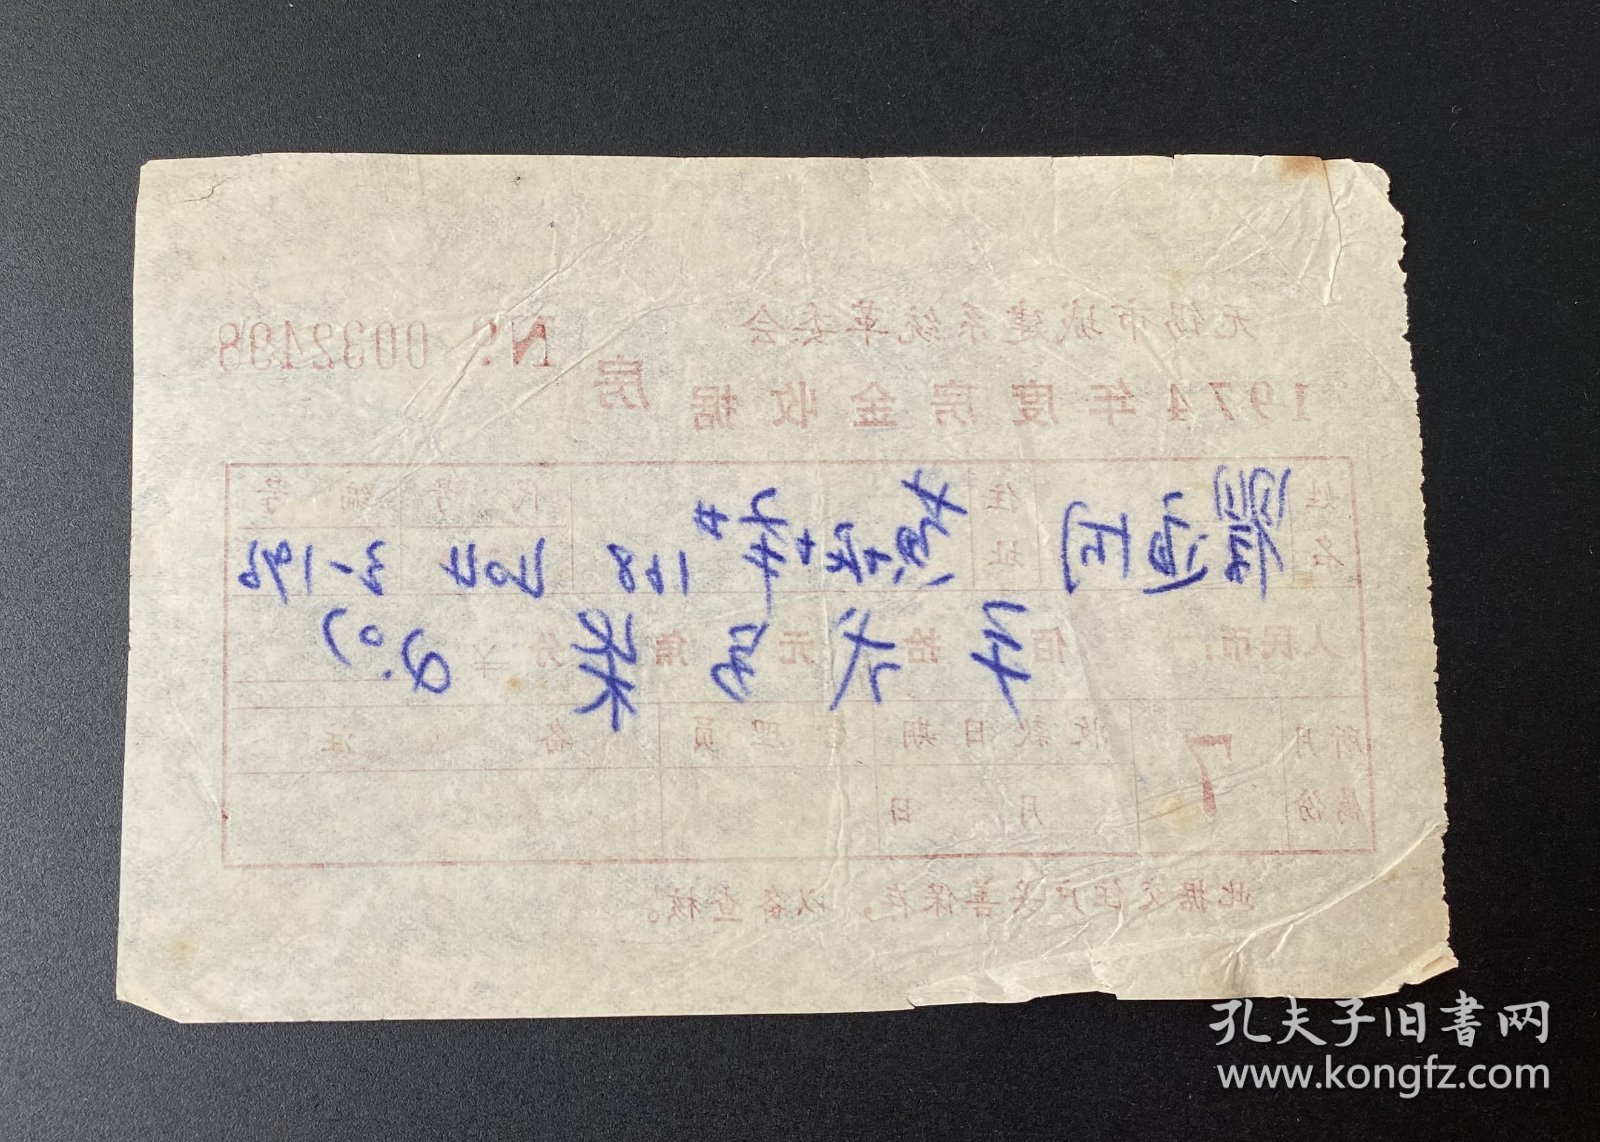 无锡市城建系统革委会
№ 0032498
1974年度房金收据 房
姓名 住址 代号 编号
168 404 3-196
人民币: 佰 拾 元 角 分 ¥
2.07
所属月份 7 收款日期 管理员 备注
月 日
此据交住户妥善保存,以备查核。
孔夫子旧书网
www.kongfz.com